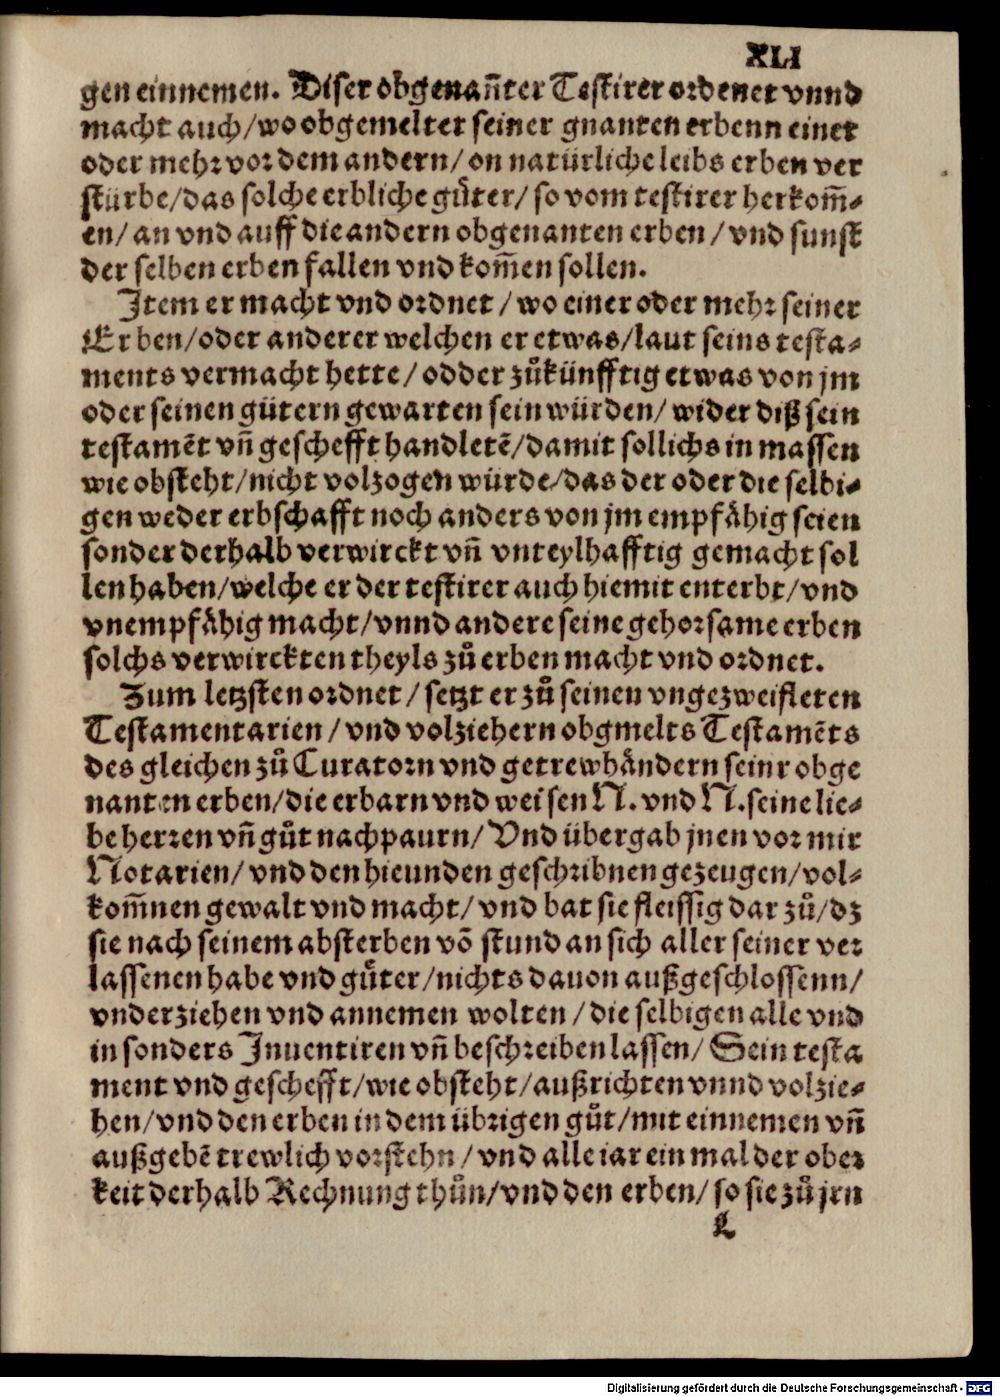 XLI
gen einnemen. Diser obgenañter Testirer ordenet vnnd
macht auch/wo obgemelter seiner gnanten erbenn einer
oder mehr vor dem andern/on natürliche leibs erben ver
stürbe/das solche erbliche gůter/so vom testirer herkom̃⸗
en/an vnd auff die andern obgenanten erben/vnd sunst
der selben erben fallen vnd kom̃en sollen.
Item er macht vnd ordnet/wo einer oder mehr seiner
Erben/oder anderer welchen er etwas/laut seins testa⸗
ments vermacht hette/odder zůkünfftig etwas von jm
oder seinen gütern gewarten sein würden/wider diß sein
testamēt vñ geschefft handletē/damit sollichs in massen
wie obsteht/nicht volzogen würde/das der oder die selbi⸗
gen weder erbschafft noch anders von jm empfåhig seien
sonder derhalb verwirckt vñ vnteylhafftig gemacht sol
len haben/welche er der testirer auch hiemit enterbt/vnd
vnempfåhig macht/vnnd andere seine gehorsame erben
solchs verwirckten theyls zů erben macht vnd ordnet.
Zum letzsten ordnet/setzt er zů seinen vngezweifleten
Testamentarien/vnd volziehern obgmelts Testamēts
des gleichen zů Curatorn vnd getrewhåndern seinr obge
nanten erben/die erbarn vnd weisen N. vnd N. seine lie⸗
be herren vñ gůt nachpaurn/Vnd übergab jnen vor mir
Notarien/vnd den hieunden geschribnen gezeugen/vol⸗
kom̃nen gewalt vnd macht/vnd bat sie fleissig dar zů/dz
sie nach seinem absterben võ stund an sich aller seiner ver
lassenen habe vnd gůter/nichts dauon außgeschlossenn/
vnderziehen vnd annemen wolten/die selbigen alle vnd
in sonders Inuentiren vñ beschreiben lassen/Sein testa
ment vnd geschefft/wie obsteht/außrichten vnnd volzie⸗
hen/vnd den erben in dem übrigen gůt/mit einnemen vñ
außgebē trewlich vorstehn/vnd alle iar ein mal der ober
keit derhalb Rechnung thůn/vnd den erben/so sie zů jrn
L
Digitalisierung gefördert durch die Deutsche Forschungsgemeinschaft - DFG